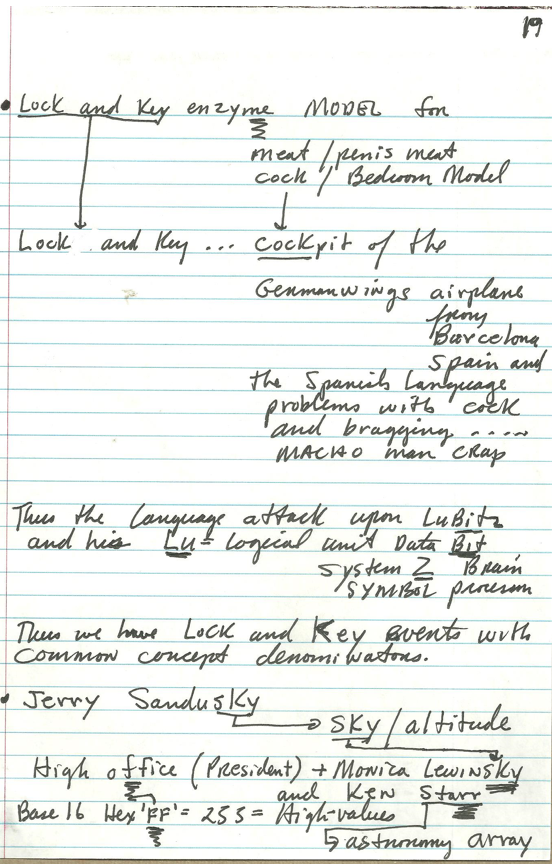 19
• Lock and Key enzyme MODEL for
meat / penis meat
cock / Bedroom Model
Lock and Key ... cockpit of the
Germanwings airplane
from
Barcelona
Spain and
the Spanish Language
problems with cock
and bragging .....
MACHO man CRap
Thus the language attack upon LuBitz
and his Lu = Logical unit Data Bit
System Z Brain
SYMBOL processor
Thus we have Lock and Key events with
common concept denominators.
• Jerry Sandusky
SKy / altitude
High office (President) + Monica Lewinsky
and Ken Starr
Base 16 Hex 'FF' = 255 = High-values
astronomy array